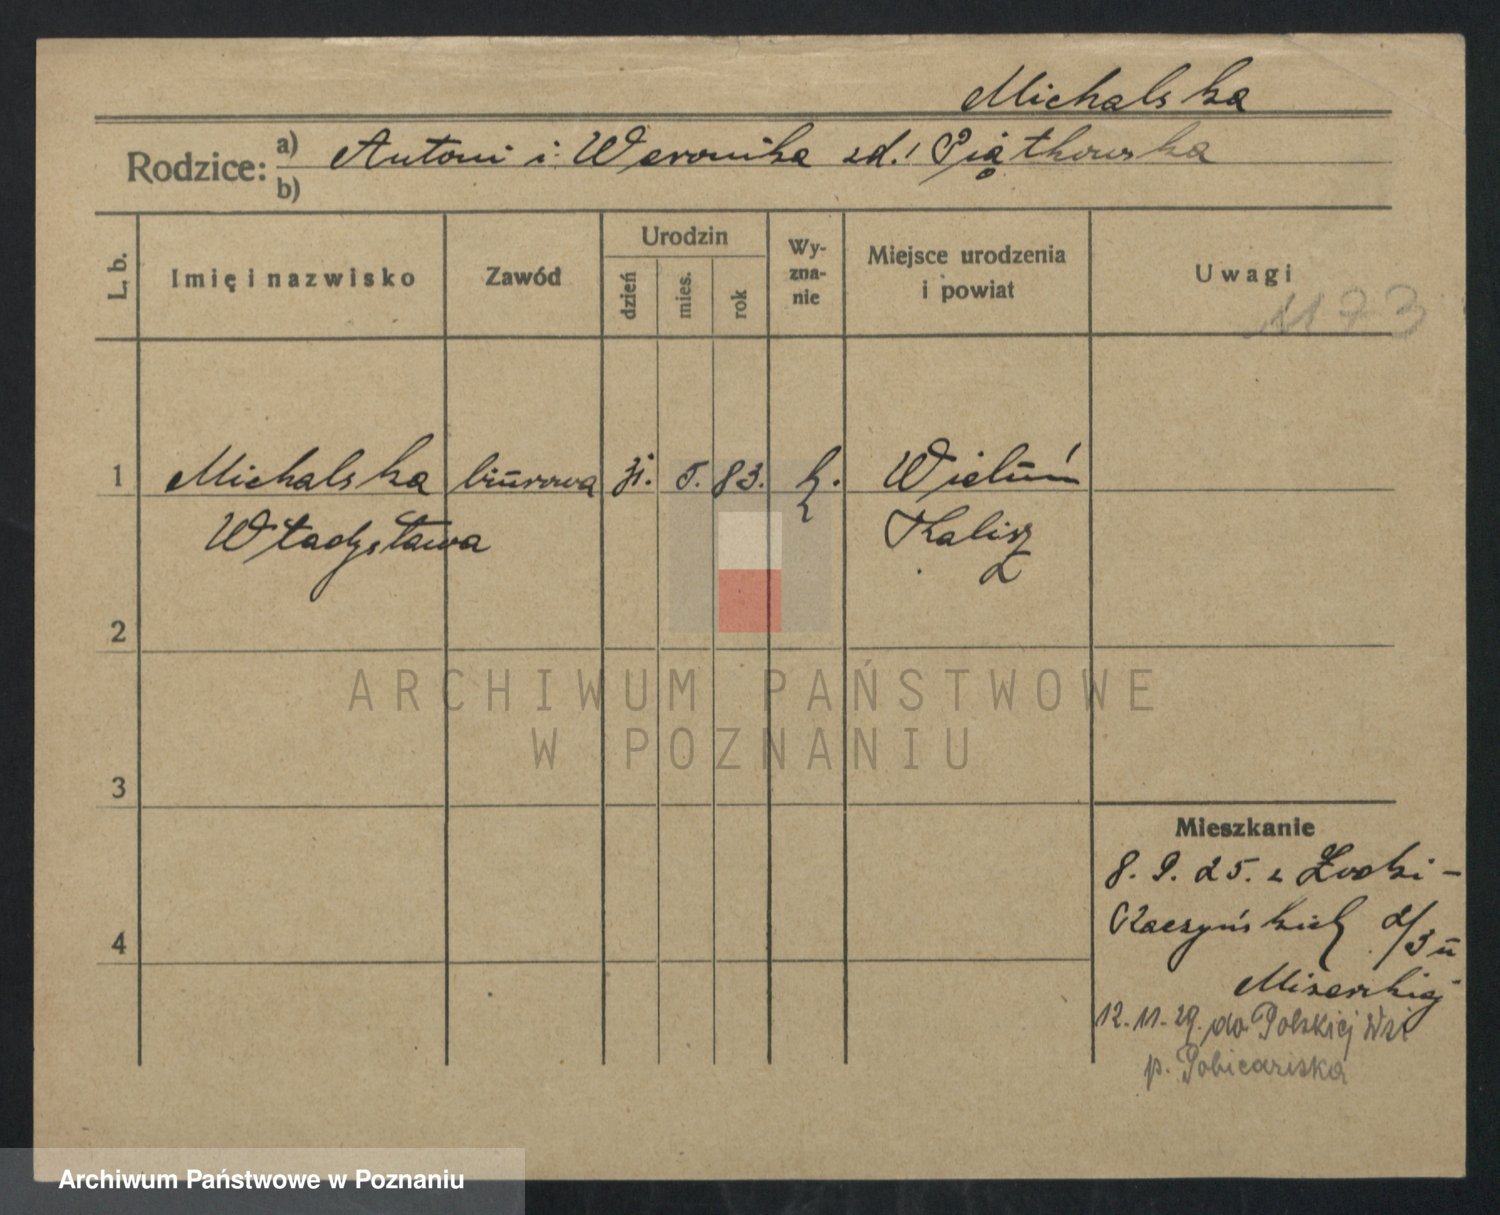 Michalska
Rodzice: a) Antoni i Weronika zd. Piątkowska
b)
L. b.
Imię i nazwisko
Zawód
Urodzin
dzień
mies.
rok
Wy-
zna-
nie
Miejsce urodzenia
i powiat
Uwagi
1173
1 Michalska biurowa 31. 5. 83. k. Wieluń
Władysława Kalisz
2
3
4
ARCHIWUM PAŃSTWOWE
W POZNANIU
Mieszkanie
8. 9. 25. z Łodzi -
Raczyńskich 2/3 u
12. 11. 29. do Polskiej Wsi
p. Pobiedziska
Archiwum Państwowe w Poznaniu